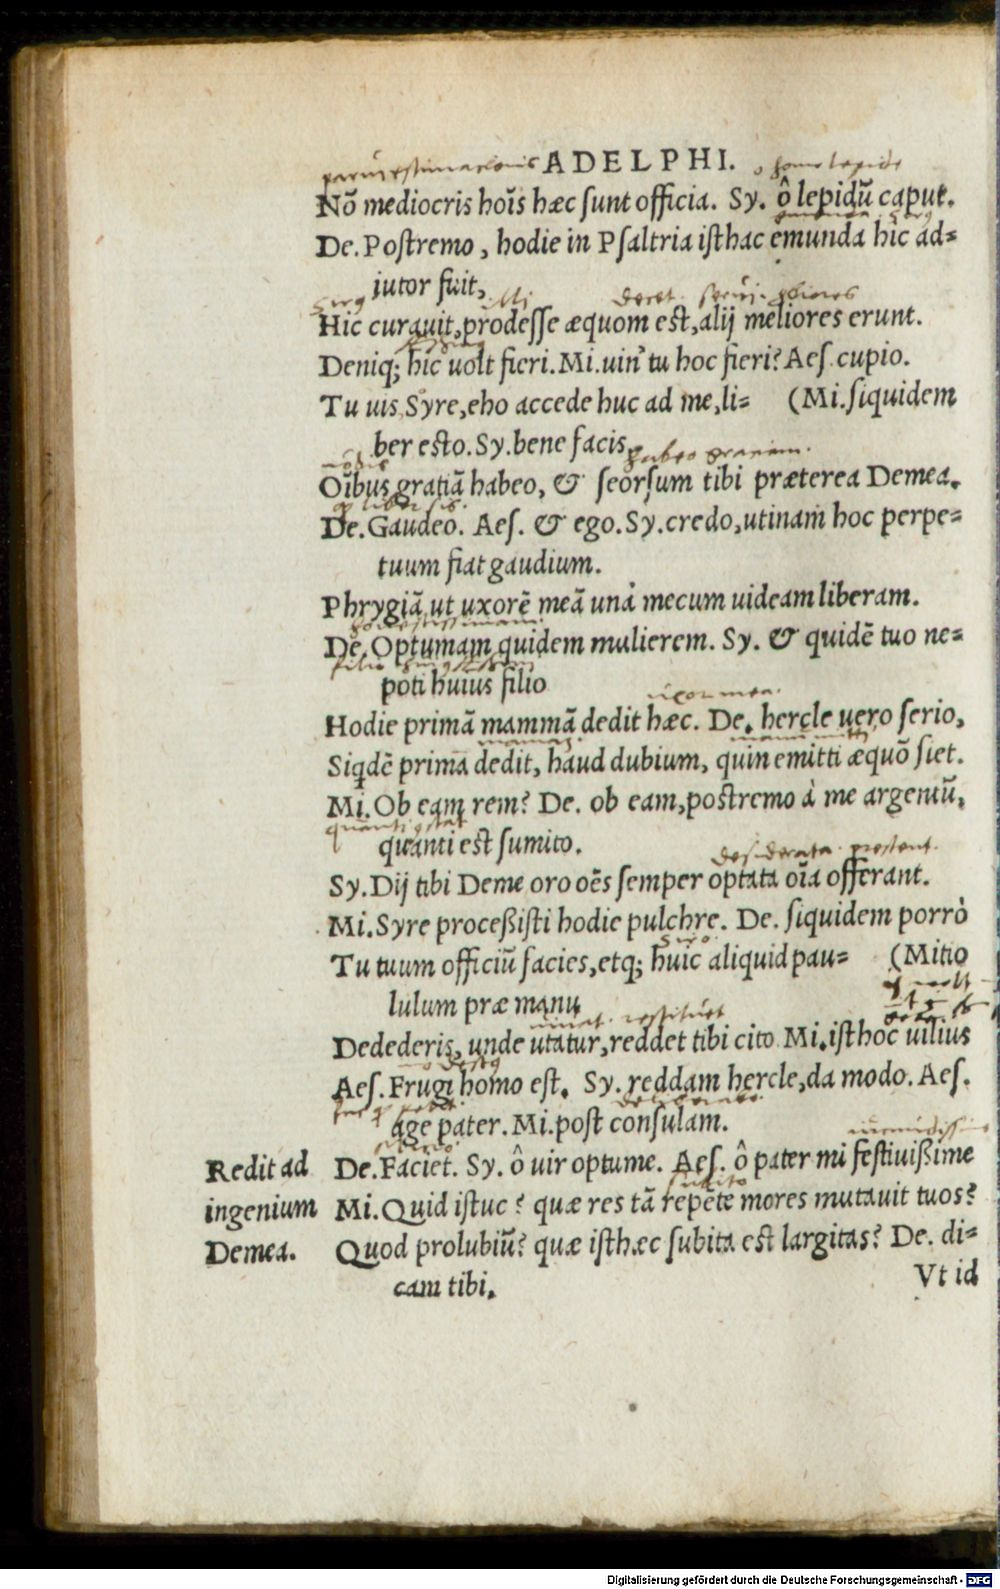 ADELPHI.
parui estimationis o homo lepide
Nō mediocris hoīs hæc sunt officia. Sy. ô lepidū caput.
De. Postremo, hodie in Psaltria isthac emunda hic ad=
iutor fuit,
decet. serui. pliores
Hic curauit, prodesse æquom est, alij meliores erunt.
Deniq; hic uolt fieri. Mi. uin' tu hoc fieri? Aes. cupio.
Tu uis Syre, eho accede huc ad me, li= (Mi. siquidem
ber esto. Sy. bene facis,
habeo gratiam.
Oībus gratiā habeo, & seorsum tibi præterea Demea.
De. Gaudeo. Aes. & ego. Sy. credo, utinam hoc perpe=
tuum fiat gaudium.
Phrygiā ut uxorē meā unà mecum uideam liberam.
De. Optumam quidem mulierem. Sy. & quidē tuo ne=
filio
poti huius filio
uxor mea.
Hodie primā mammā dedit hæc. De. hercle uero serio,
Siqdē prima dedit, haud dubium, quin emitti æquō siet.
Mi. Ob eam rem? De. ob eam, postremo à me argentū,
quanti est sumito.
desiderata. prestent.
Sy. Dij tibi Deme oro oēs semper optata oīa offerant.
Mi. Syre processisti hodie pulchre. De. siquidem porrò
Tu tuum officiū facies, etq; huic aliquid pau= (Mitio
lulum præ manu
uiuat. restituet
Dedederis, unde utatur, reddet tibi cito. Mi. isthoc uilius
Aes. Frugi homo est. Sy. reddam hercle, da modo. Aes.
age pater. Mi. post consulam.
Redit ad De. Faciet. Sy. ô uir optume. Aes. ô pater mi festiuissime
subito
ingenium Mi. Quid istuc? quæ res tā repēte mores mutauit tuos?
Demea. Quod prolubiū? quæ isthæc subita est largitas? De. di=
cam tibi. Vt id
Digitalisierung gefördert durch die Deutsche Forschungsgemeinschaft - DFG